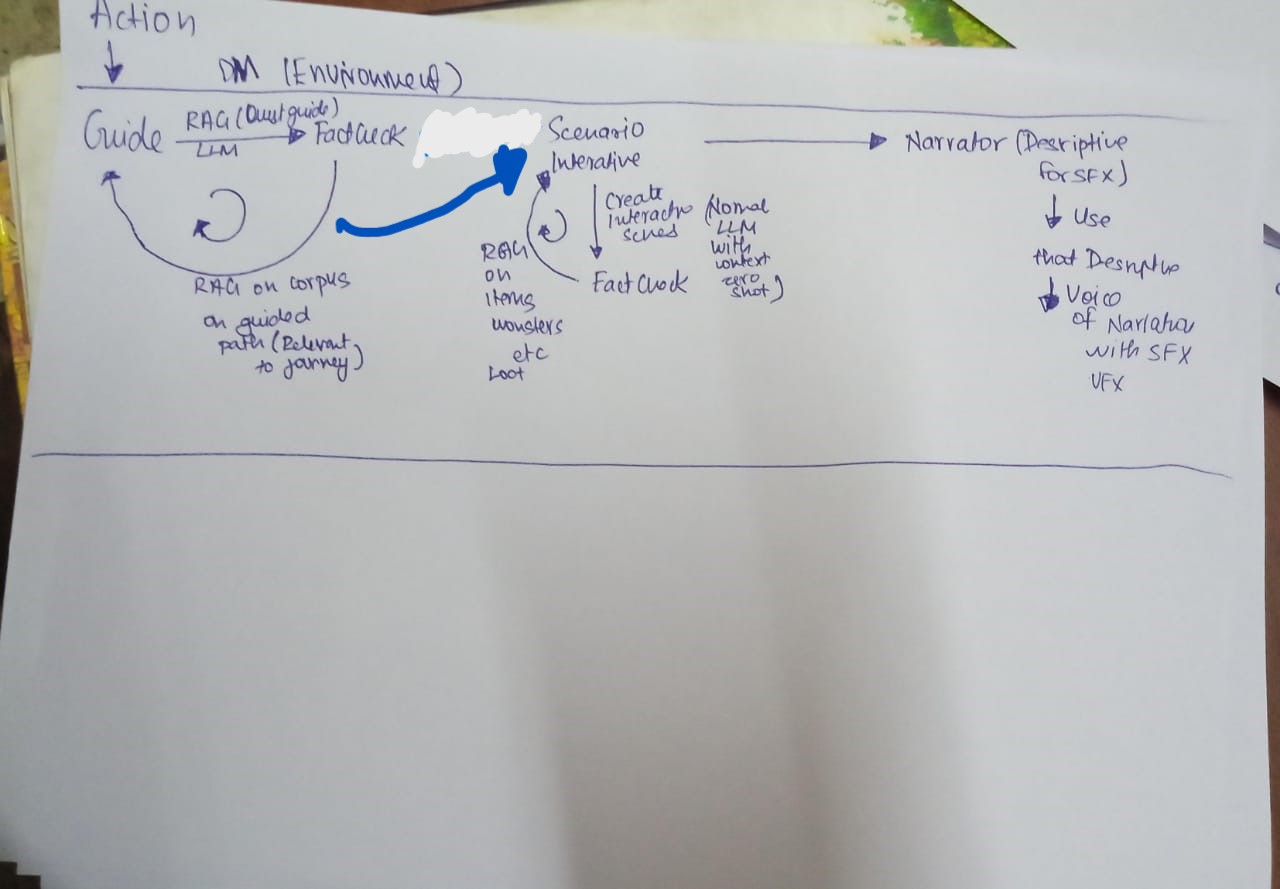 Action
DM (Environment)
Guide
RAG (Questguide)
LLM
Fact Check
RAG on corpus
on guided
path (Relevant
to journey)
Scenario
Interative
Create
Interactio
(Normal
LLM
with
context
zero
shot)
RAG
on
items
monsters
etc
Loot
Fact Check
Narrator (Desriptive
for SFX)
Use
that
Voice
of Narrator
with SFX
VFX